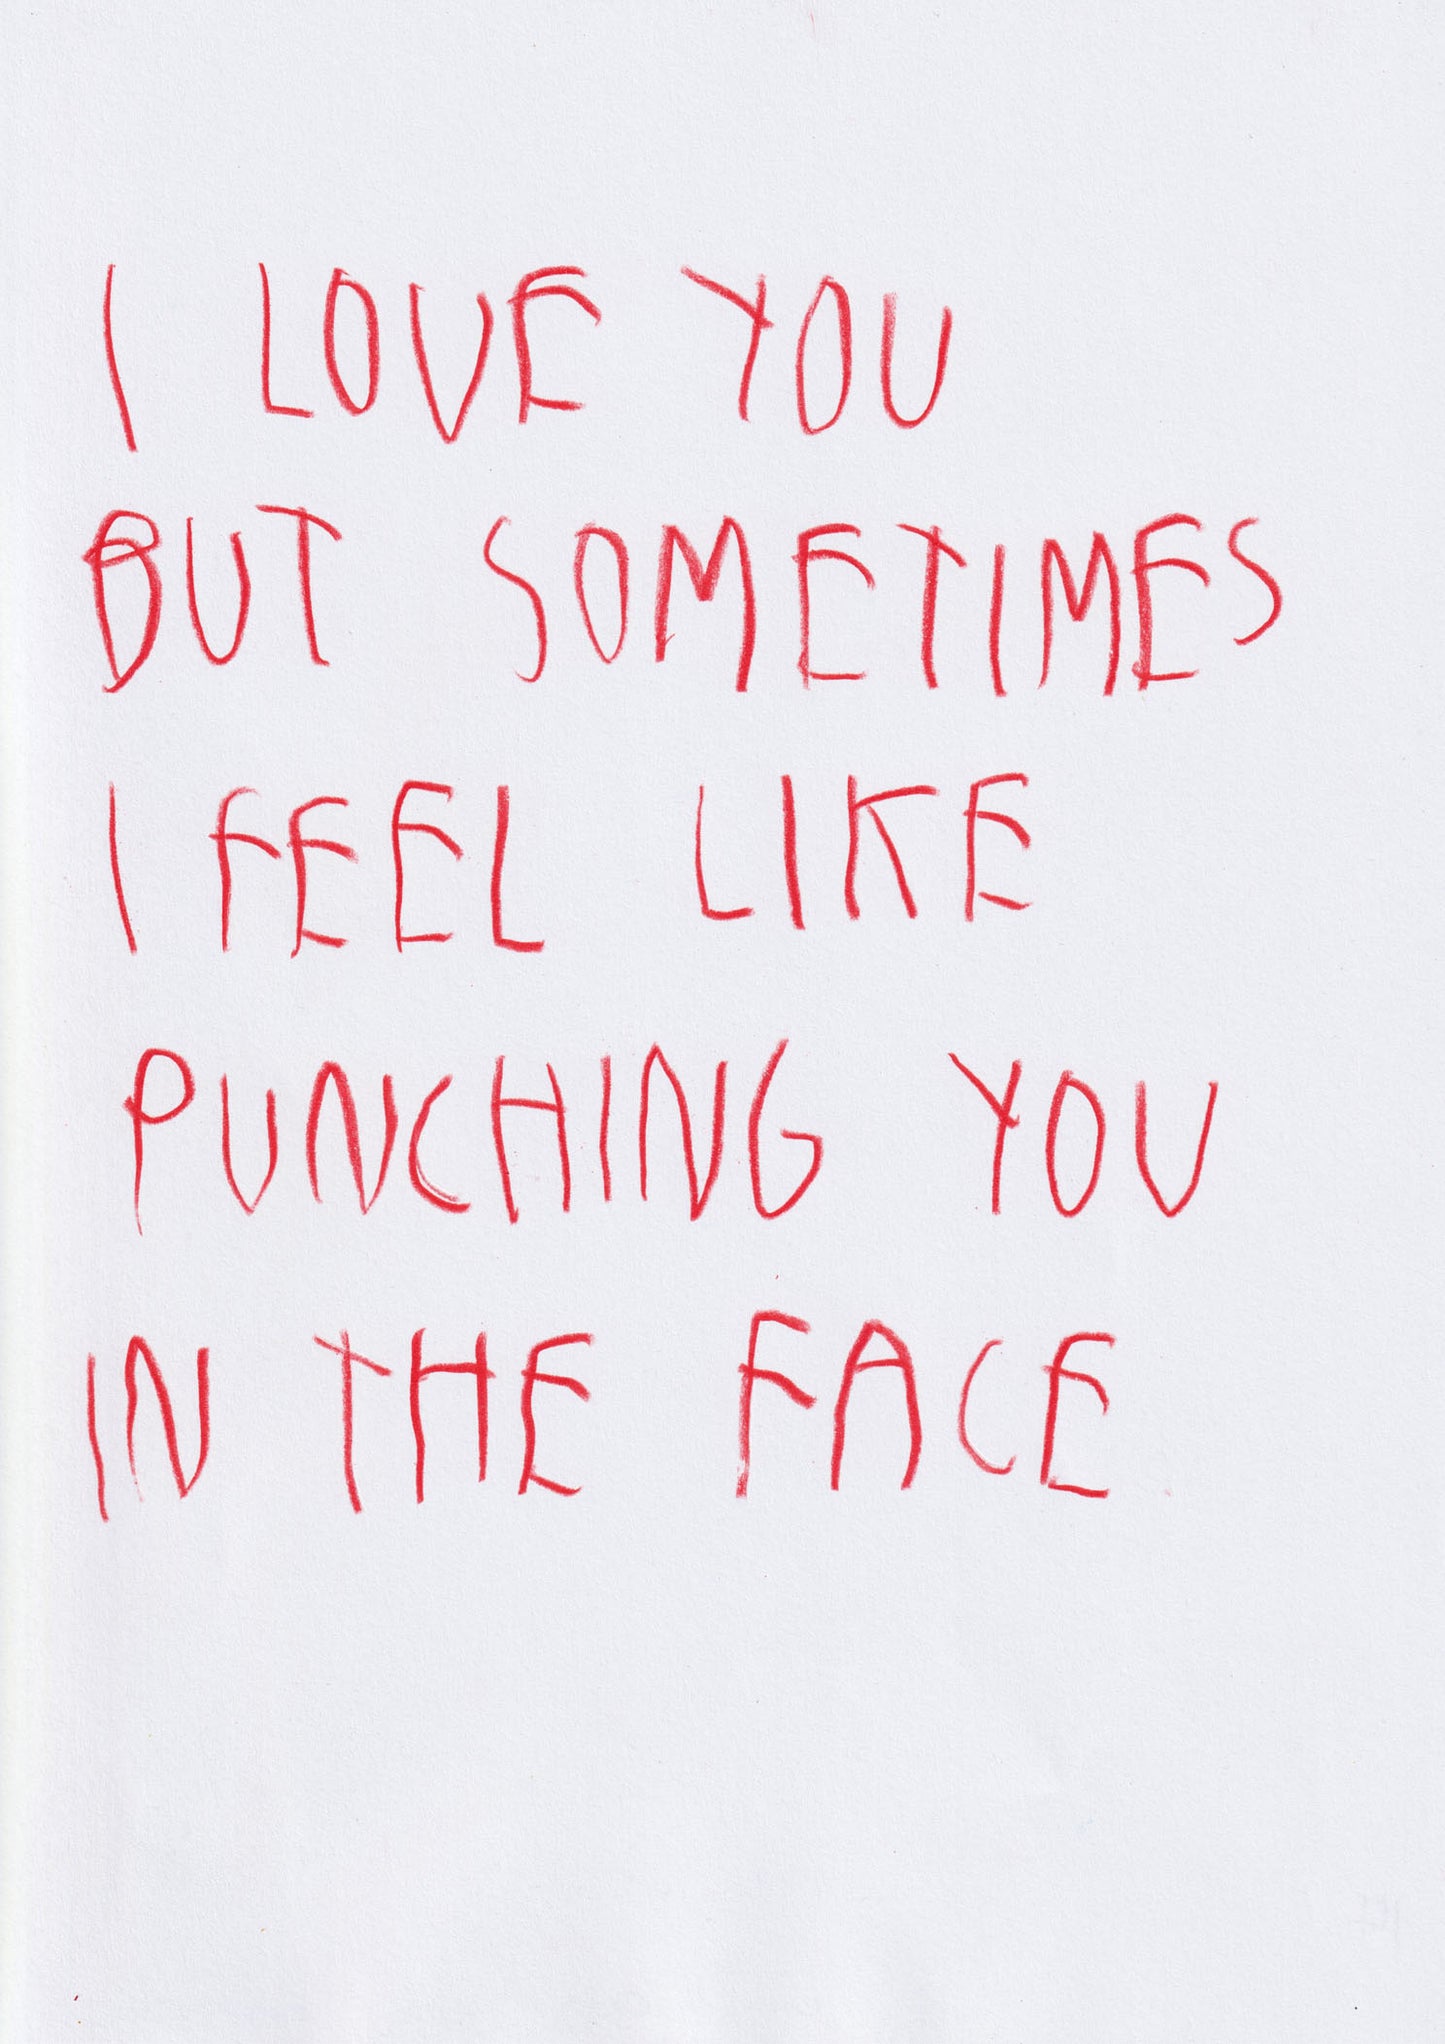 I LOVE YOU
BUT SOMETIMES
I FEEL LIKE
PUNCHING YOU
IN THE FACE